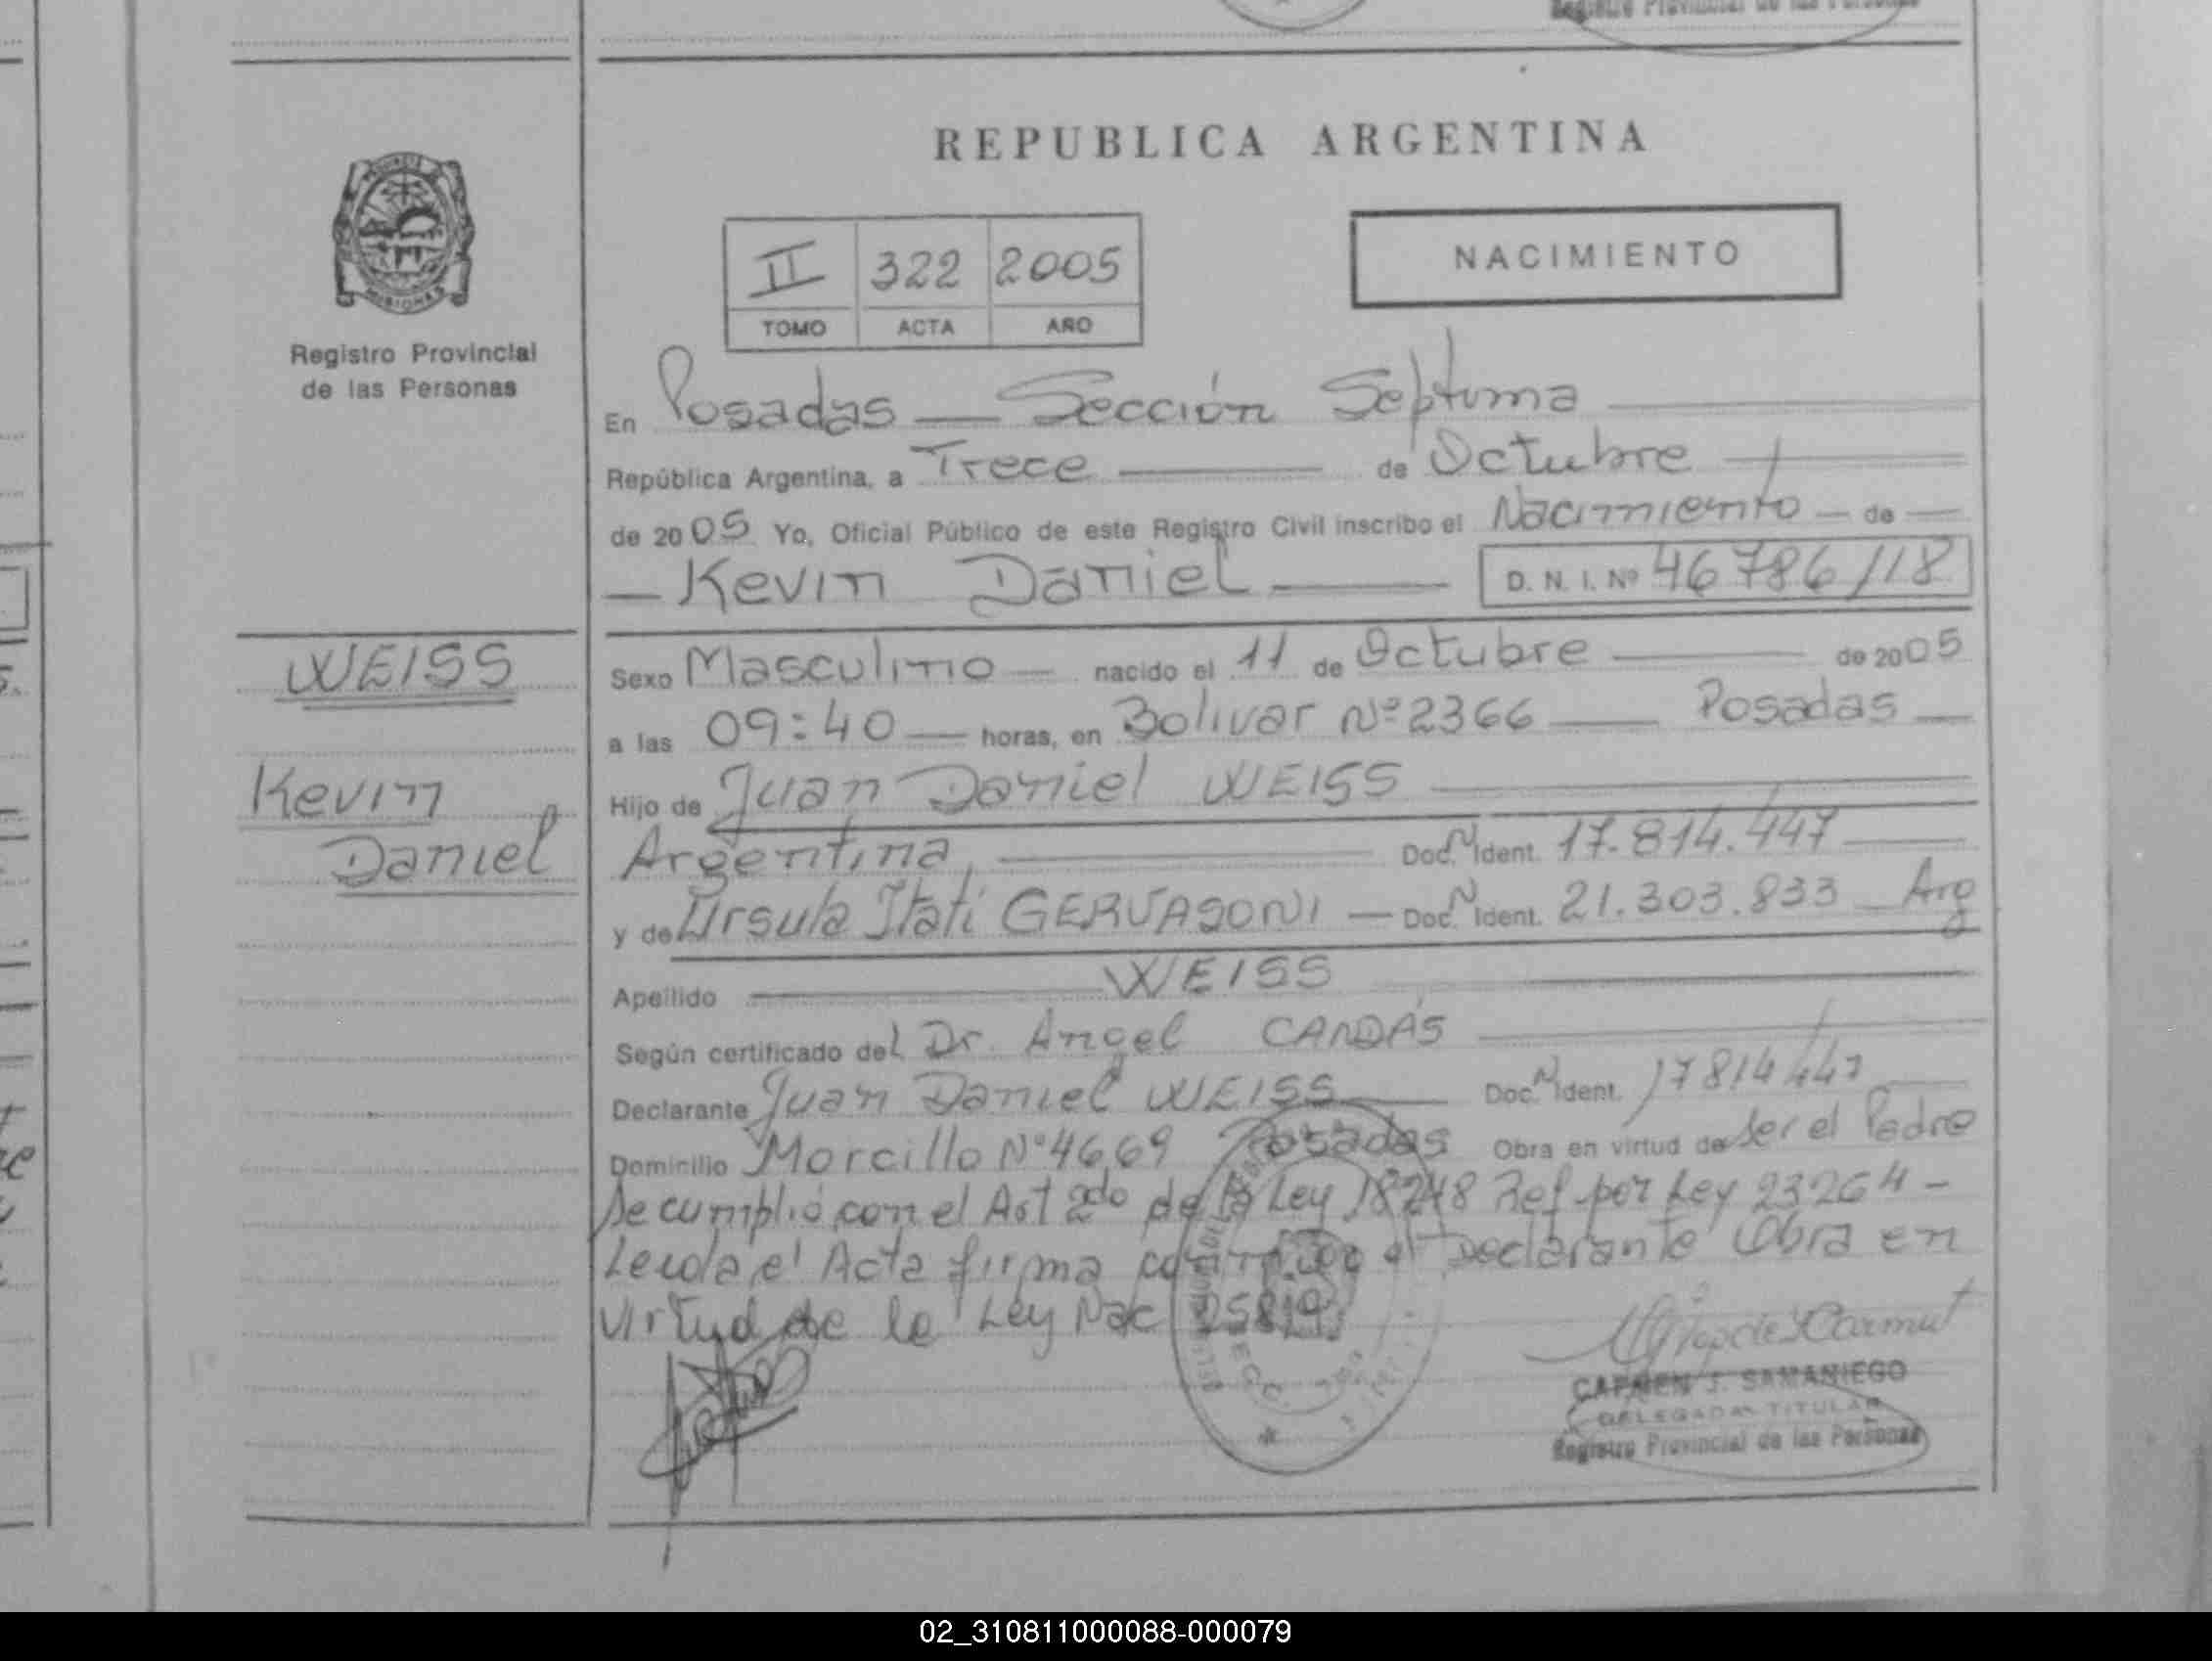 Registro Provincial de las Personas
REPUBLICA ARGENTINA
MISIONES
Registro Provincial
de las Personas
II 322 2005
TOMO ACTA AÑO
NACIMIENTO
En Posadas — Sección Septima
República Argentina, a Trece de Octubre
de 2005 Yo, Oficial Público de este Registro Civil inscribo el Nacimiento — de —
— Kevin Daniel — D. N. I. Nº 46786118
WEISS
Kevin
Daniel
Sexo Masculino — nacido el 11 de Octubre de 2005
a las 09:40 — horas, en Bolivar Nº 2366 — Posadas —
Hijo de Juan Daniel WEISS
Argentina, Doc. N Ident. 17.814.447
y de Ursula Itatí GERVASONI — Doc. N Ident. 21.303.833 _ Arg
Apellido WEISS
Según certificado del Dr. Angel CANDÁS
Declarante Juan Daniel WEISS Doc. N Ident. 17814447
Domicilio Morcillo Nº 4669 Posadas Obra en virtud de ser el Padre
Se cumplió con el Art 2do de la Ley 18248 Ref por Ley 23264 -
Leida el Acta firma conmigo el Declarante Obra en
virtud de la Ley Nac 25819
CARMEN J. SAMANIEGO
DELEGADA TITULAR
Registro Provincial de las Personas
02_310811000088-000079